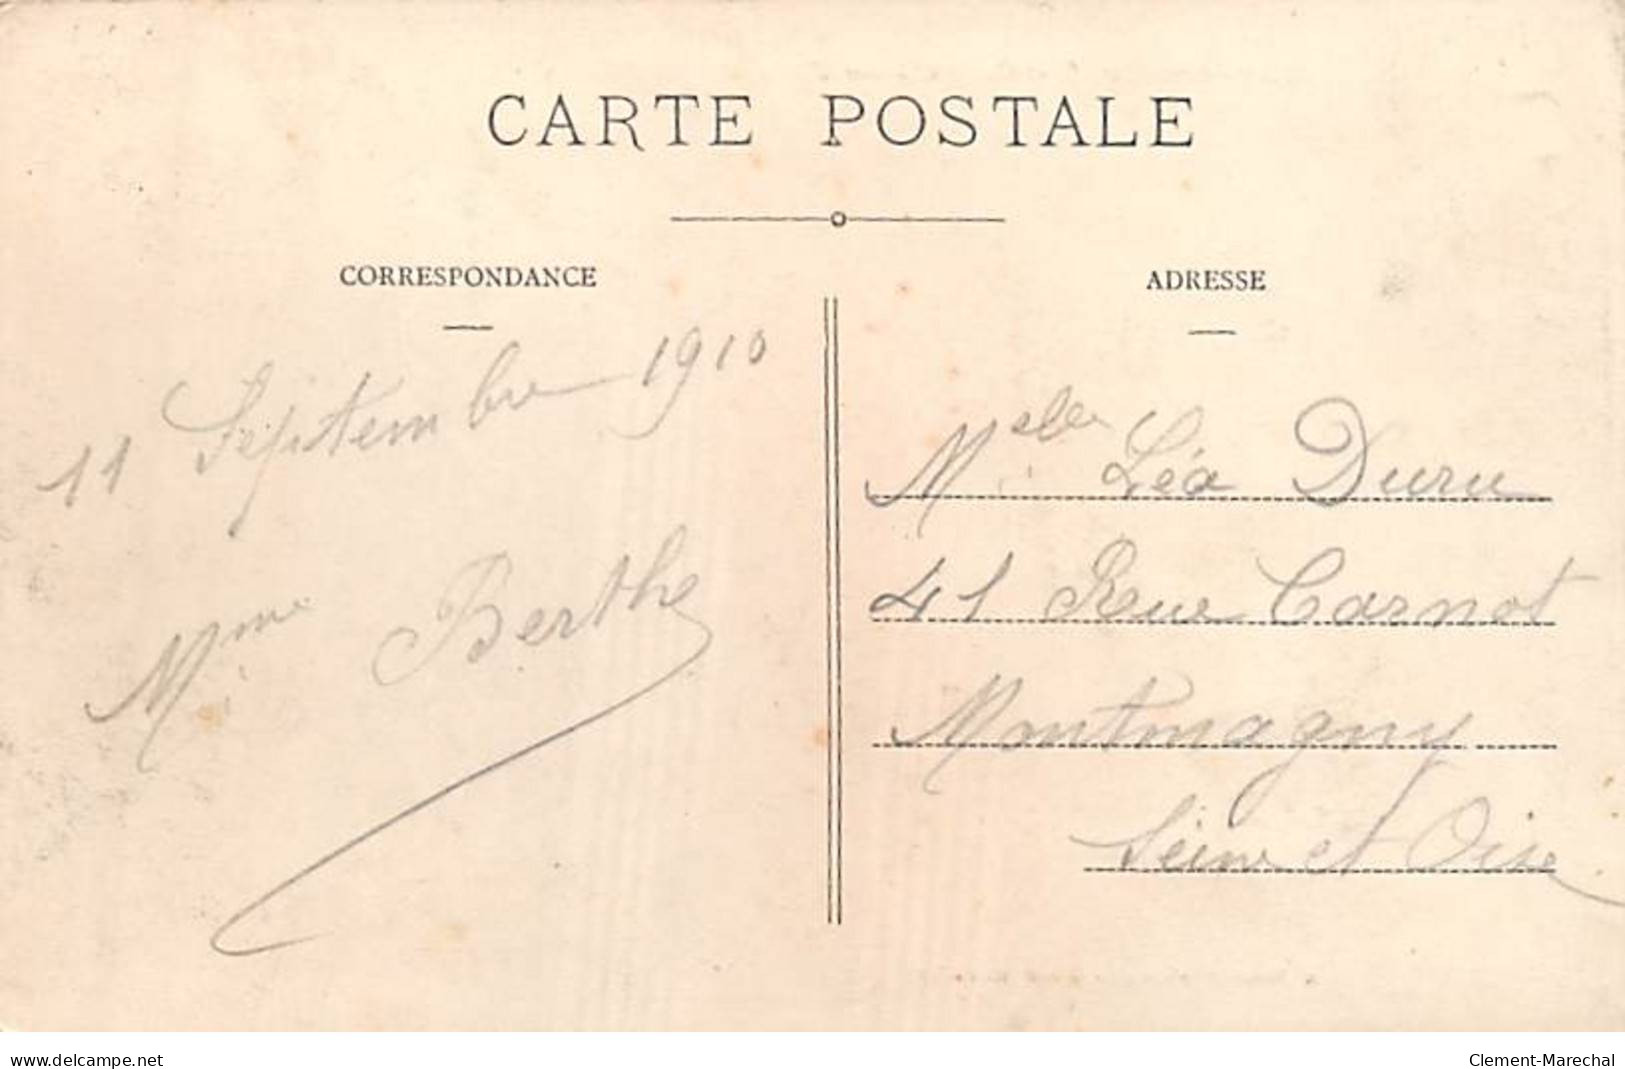 CARTE POSTALE
CORRESPONDANCE
11 Septembre 1910
Mme Berthe
ADRESSE
Melle Léa Duru
41 Rue Carnot
Montmagny
Seine et Oise
www.delcampe.net
Clement-Marechal